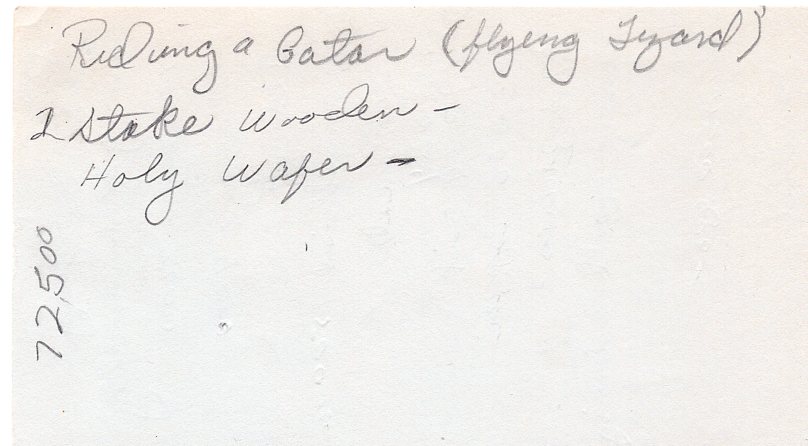 Riding a Gator (flyeng Lizard)
2 Stake Wooden -
Holy Wafer -
72,500